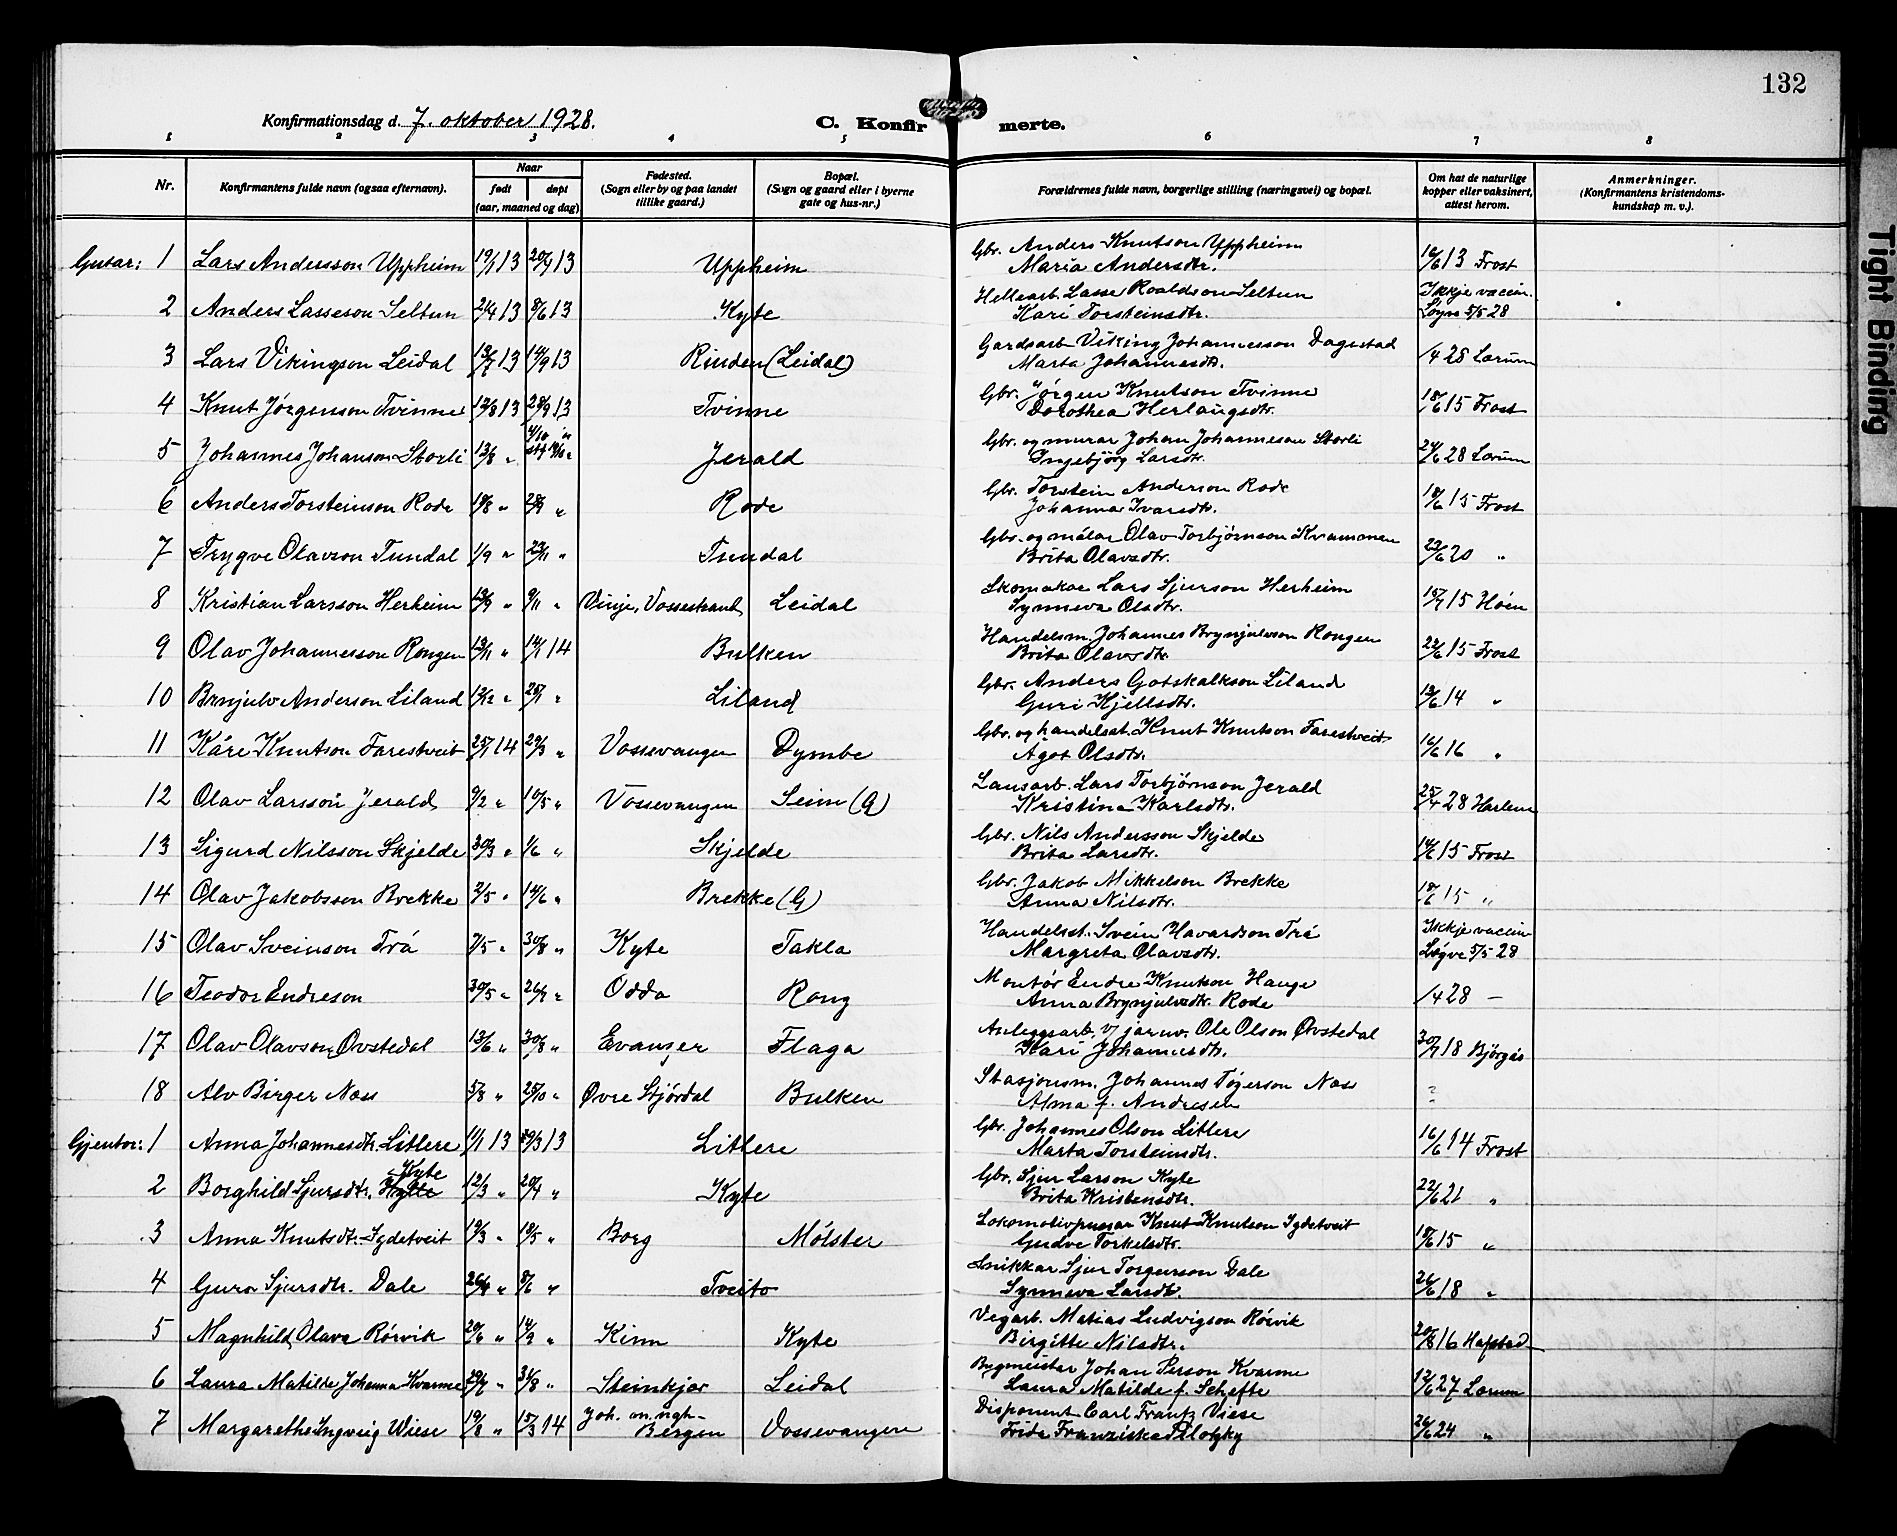 132
Konfirmationsdag d. 7. oktober 1928.
C. Konfirmerte.
1 2 3 4 5 6 7 8
Nr.
Konfirmantens fulde navn (ogsaa efternavn).
Naar
født døpt
(aar, maaned og dag)
Fødested.
(Sogn eller by og paa landet
tillike gaard.)
Bopæl.
(Sogn og gaard eller i byerne
gate og hus-nr.)
Forældrenes fulde navn, borgerlige stilling (næringsvei) og bopæl.
Om hat de naturlige
kopper eller vaksinert,
attest herom.
Anmerkninger.
(Konfirmantens kristendoms-
kundskap m. v.).
Tight Binding
Gutar: 1 Lars Andersson Uppheim 19/1 13 20/4 13 Uppheim Gbr. Anders Knutson Uppheim
Maria Andersdtr. 13 Frost
2 Anders Lasseson Seltun 2/4 13 8/6 13 Kyte Hellearb. Lasse Roaldson Seltun
Kari Torsteinsdtr. Ikkje vaccin.
Løgve 5/5 28
3 Lars Vikingson Leidal 13 14/9 13 Rinden (Leidal) Gardsarb. Viking Johannesson Dagestad
Marta Johannesdtr. 1/4 28 Lørum
4 Knut Jørgenson Tvinne 13 28/9 13 Tvinne Gbr. Jørgen Knutson Tvinne
Dorothea Herlaugsdtr. 15 Frost
5 Johannes Johanson Storli 13/8 „ Jerald Gbr. og murar Johan Johanneson Storli
Ingebjörg Larsdtr. 28 Lørum
6 Anders Torsteinson Rode „ 28/9 „ Rode Gbr. Torstein Anderson Rode
Johanna Ivarsdtr. 15 Frost
7 Trygve Olavson Tundal 1/9 „ 23/11 „ Tundal Gbr. og målar Olav Torbjørnson Kvammen
Brita Olavsdtr. 20 „
8 Kristian Larsson Herheim „ 9/11 „ Vinje, Vossestrand Leidal Skomakar Lars Sjurson Herheim
Synneva Olsdtr. 15 Høen
9 Olav Johannesson Rongen „ 14/1 14 Bulken Handelsm. Johannes Brynjulvson Rongen
Brita Olavsdtr. 15 Frost
10 Brnjulv Anderson Liland „ 25/1 „ Liland Gbr. Anders Gotskalkson Liland
Guri Kjellsdtr. 14 „
11 Kåre Knutson Farestveit 25/1 14 29/3 „ Vossevangen Dymbe Gbr. og handelsst. Knut Knutson Farestveit
Ågot Olsdtr. 16/6 16 „
12 Olav Larsson Jerald 9/2 „ 10/5 „ Vossevangen Seim (G) Lausarb. Lars Torbjørnson Jerald
Kristina Karlsdtr. 25/4 28 Harlem
13 Sigurd Nilsson Skjelde 30/3 „ 1/6 „ Skjelde Gbr. Nils Andersson Skjelde
Brita Larsdtr. 15 Frost
14 Olav Jakobsson Brekke 2/5 „ 14/6 „ Brekke (G) Gbr. Jakob Mikkelson Brekke
Anna Nilsdtr. 15 „
15 Olav Sveinson Trå 7/5 „ 30/8 „ Kyte Takla Handelsst. Svein Havardson Trå
Margreta Olavsdtr. Ikkje vaccin
Løgve 5/5 28
16 Teodor Endreson 30/5 „ 26/7 „ Odda Rong Montør Endre Knutson Hauge
Anna Brynjulvsdtr. Rode 1/4 28 —
17 Olav Olavson Øvstedal 13/6 „ 30/8 „ Evanger Flaga Anleggsarb. v/ jarnv. Ole Olson Øvstedal
Kari Johannesdtr. 30/7 18 Bjørgås
18 Alv Birger Næss 5/8 „ 25/10 „ Øvre Stjórdal Bulken Stasjonsm. Johannes Tøgerson Næss
Alma f. Andresen ?
Gjentor: 1 Anna Johannesdtr. Litlere 11/1 13 29/3 13 Litlere Gbr. Johannes Olson Litlere
Marta Torsteinsdtr. 16/6 14 Frost
Kyte
2 Borghild Sjursdtr. 12/3 „ 20/4 „ Kyte Gbr. Sjur Larson Kyte
Brita Kristensdtr. 22/6 21 „
3 Anna Knutsdtr. Sydstveit 19/3 „ „ Borg Mólster Lokomotivpussar Knut Knutson Sydstveit
Gudve Torkelsdtr. 15 „
4 Guro Sjursdtr. Dale 26/4 „ 8/6 „ Tveito Snikkar Sjur Torgerson Dale
Synneva Larsdtr. 26/6 18 „
5 Magnhild Olava Rórvik 20/6 „ 14/9 „ Kinn Kyte Vegarb. Matias Ludvigson Rórvik
Birgitte Nilsdtr. 20/8 16 Hafstad
6 Laura Matilde Johanna Kvarme 29/7 „ 31/8 „ Steinkjær Leidal Bygmeister Johan Person Kvarme
Laura Matilde f. Schefte 12/6 27 Lørum
7 Margarethe Ingveig Wiese 19/8 „ 15/3 14 Joh. m.ngh.
Bergen Vossevangen Disponent Carl Frantz Viese
Frida Franziska 26/6 24 „